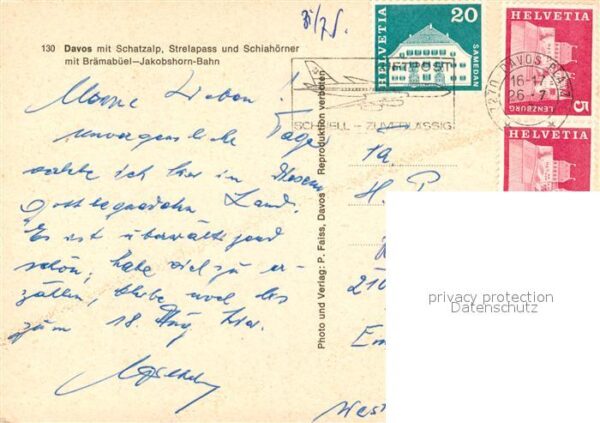 130 Davos mit Schatzalp, Strelapass und Schiahörner
mit Brämabüel–Jakobshorn-Bahn
Meine Lieben!
unvergessliche Tage,
welche ich hier in diesem
gottbegnadeten Land.
Es ist überwältigend
schön, habe viel zu er-
zählen, bleibe noch bis
zum 18. Aug hier.
Photo und Verlag: P. Faiss, Davos
Reproduktion verboten
HELVETIA
20
SAMEDAN
HELVETIA
5
LENZBURG
HELVETIA
LUFTPOST
SCHNELL – ZUVERLÄSSIG
7270 DAVOS PLATZ
16-17
26.-7.
Fa
H. P
210
Em
West
privacy protection
Datenschutz